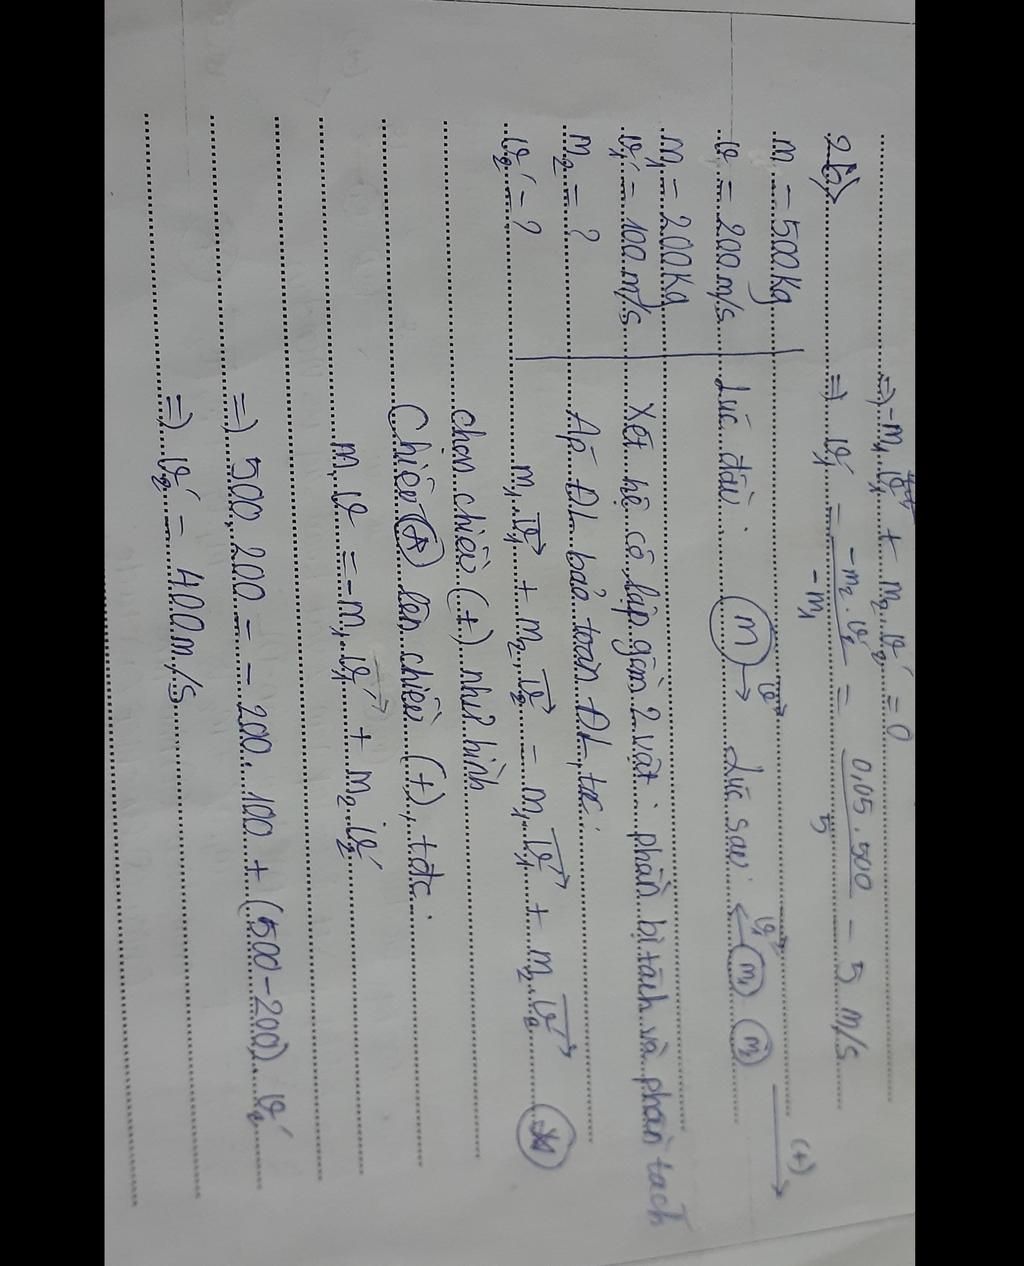 => -m₁.v₁' + m₂.v₂' = 0
=> v₁' = -m₂.v₂' / -m₁ = 0,05.500 / 5 = 5 m/s
2b)
m = 500kg
v = 200m/s
m₁ = 200kg
v₁' = 100m/s
m₂ = ?
v₂' = ?
Lúc đầu: m v⃗ Lúc sau: v₁⃗ m₁ m₂ (+)
Xét hệ cô lập gồm 2 vật: phần bị tách và phần tách
Áp ĐL bảo toàn ĐL, tc:
m₁.v₁⃗ + m₂.v₂⃗ = m₁.v₁'⃗ + m₂.v₂'⃗ (*)
chọn chiều (+) như hình
Chiếu (*) lên chiều (+), tđc:
m.v = -m₁.v₁' + m₂.v₂'
=> 500.200 = -200.100 + (500-200).v₂'
=> v₂' = 400m/s